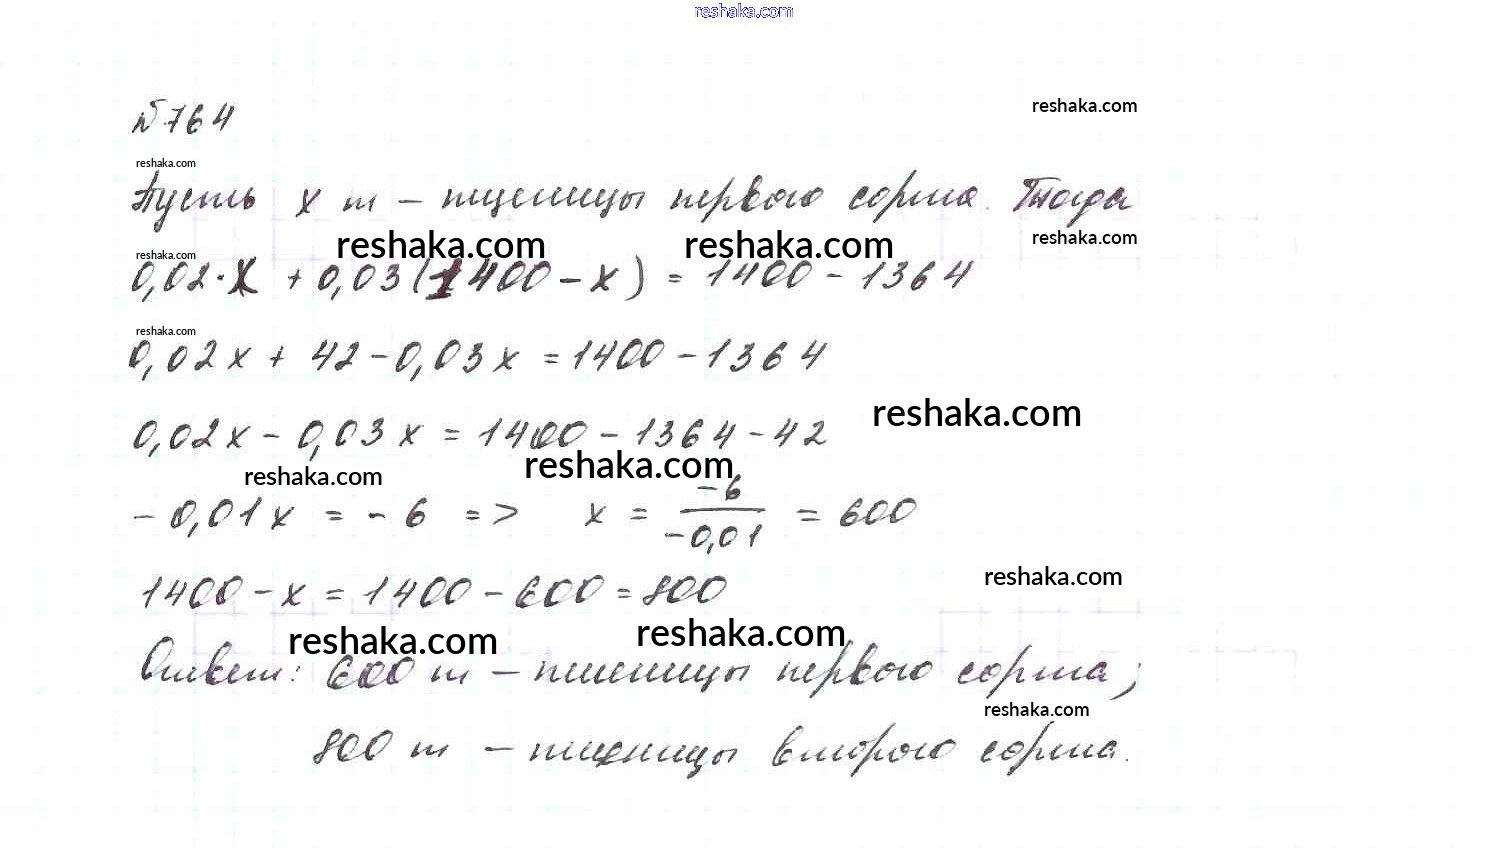 reshaka.com
№764
reshaka.com
reshaka.com
Пусть x т – пшеницы первого сорта. Тогда
reshaka.com reshaka.com reshaka.com
reshaka.com
0,02·x + 0,03(1400 – x) = 1400 – 1364
reshaka.com
0,02x + 42 – 0,03x = 1400 – 1364
reshaka.com
0,02x – 0,03x = 1400 – 1364 – 42
reshaka.com reshaka.com
– 0,01x = – 6 => x = –6/–0,01 = 600
reshaka.com
1400 – x = 1400 – 600 = 800
reshaka.com reshaka.com
Ответ: 600 т – пшеницы первого сорта;
reshaka.com
800 т – пшеницы второго сорта.